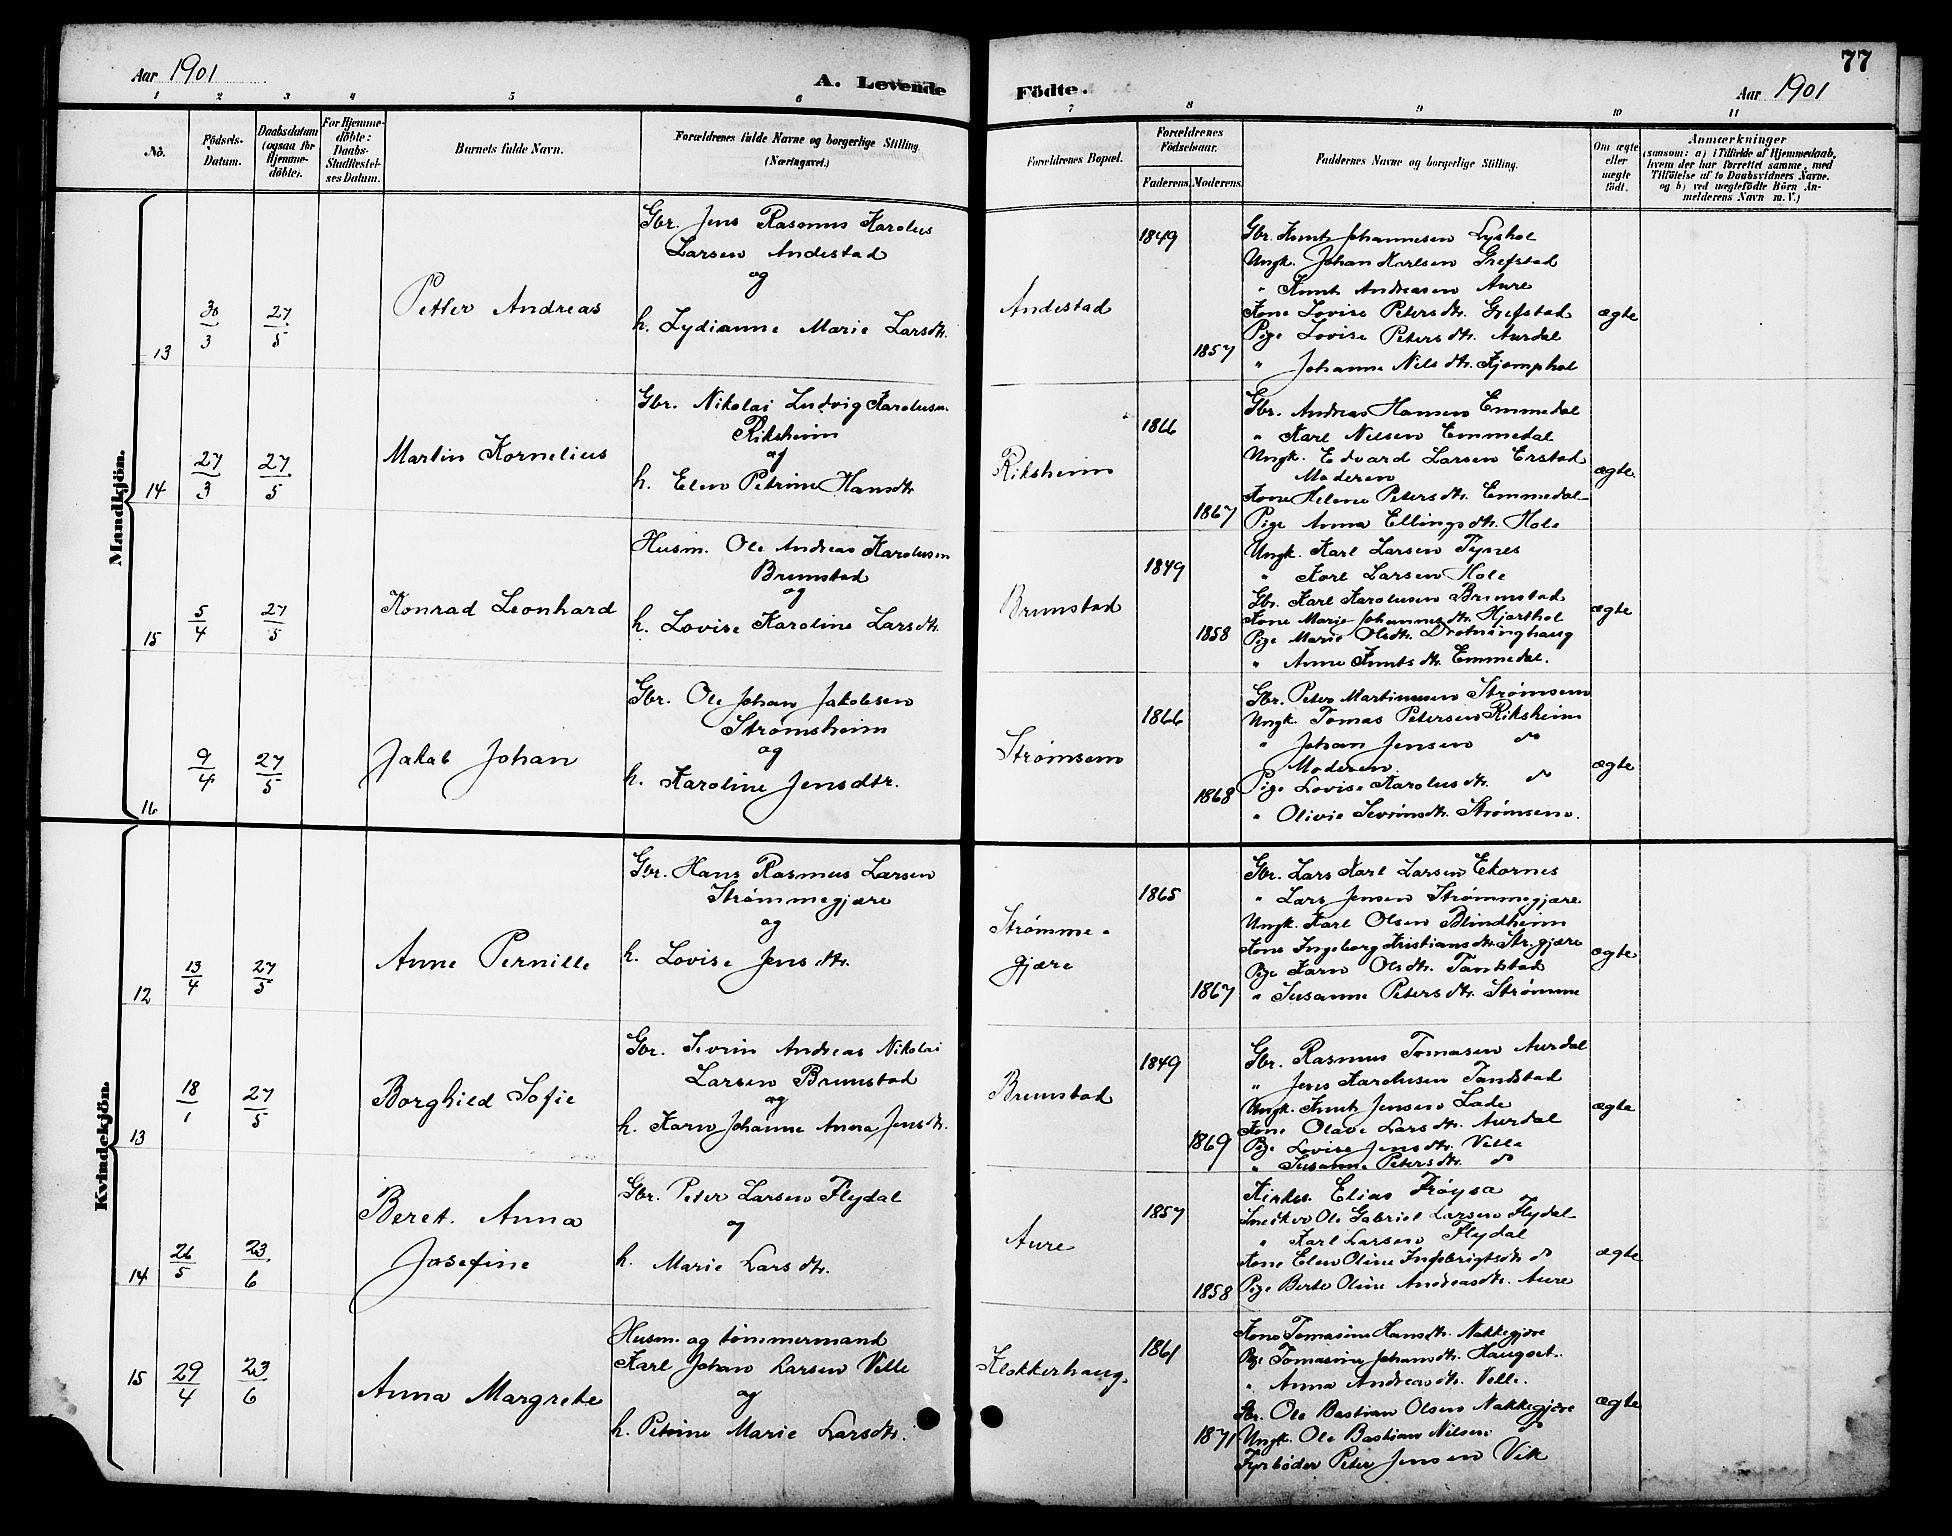 77
Aar 1901
A. Levende
Födte.
Aar 1901
1 2 3 4 5 6 7 8 9 10 11
No.
Födsels-
Datum.
Daabsdatum
(ogsaa for
Hjemme-
döbte).
For Hjemme-
döbte:
Daabs-
Stadfæstel-
ses Datum.
Barnets fulde Navn.
Forældrenes fulde Navne og borgerlige Stilling
(Næringsvei.)
Forældrenes Bopæl.
Forældrenes
Födselsaar.
Faderens. Moderens.
Faddernes Navne og borgerlige Stilling.
Om ægte
eller
uægte
født.
Anmærkninger
(saasom: a) i Tilfælde af Hjemmedaab,
hvem der har forrettet samme, med
Tilföielse af to Daabsvidners Navne.
og b) ved uægtefödte Börn An-
melderens Navn m. V.)
Mandkjön.
13
30/3
27/5
Petter Andreas
Gbr. Jens Rasmus Karolus
Larsen Andestad
og
h. Lydianne Marie Larsdtr.
Andestad
1849
1857
Gbr. Knut Johannesen Lyshol
Ungk. Johan Karlsen Grefstad
" Knut Andreasen Aure
Kone Lovise Petersdtr. Grefstad
Pige Lovise Petersdtr. Aurdal
" Johanne Nilsdtr. Kjemphol
ægte
14
27/3
27/5
Martin Kornelius
Gbr. Nikolai Ludvig Karolusen
Riksheim
og
h. Elen Petrine Hansdtr
Riksheim
1866
1867
Gbr. Andreas Hansen Emmedal
" Karl Nilsen Emmedal
Ungk. Edvard Larsen Erstad
Moderen
Kone Helene Petersdtr. Emmedal
Pige Anna Ellingsdtr. Hole
ægte.
15
5/4
27/5
Konrad Leonhard
Husm. Ole Andreas Karolusen
Brunstad
og
h. Lovise Karoline Larsdtr.
Brunstad
1849
1858
Ungk. Karl Larsen Tynes
" Karl Larsen Hole
Gbr. Karl Karolusen Brunstad
Kone Marie Johannesdtr. Hjorthol
Pige Marie Olsdtr. Drotninghaug
" Anne Knutsdtr. Emmedal.
ægte
16
9/4
27/5
Jakob Johan
Gbr. Ole Johan Jakobsen
Strømsheim
og
h. Karoline Jensdtr.
Strømsem
1866
1868
Gbr. Peter Martinusen Strømsem
Ungk. Tomas Petersen Riksheim
" Johan Jensen do
Moderen
Pige Lovise Karolusdtr. do
" Olivie Sevrinsdtr. Strømsem.
ægte
Kvindekjön.
12
13/4
27/5
Anne Pernille
Gbr. Hans Rasmus Larsen
Strømmegjære
og
h. Lovise Jensdtr.
Strømme-
gjære
1865
1867
Gbr. Lars Karl Larsen Ekornes
" Lars Jensen Strømmegjære
Ungk. Karl Olsen Blindheim
Kone Ingeborg Kristiansdtr. Str.gjære
Pige Karn Olsdtr. Tandstad
" Susanne Petersdtr. Strømme
ægte
13
18/1
27/5
Borghild Sofie
Gbr. Sevrin Andreas Nikolai
Larsen Brunstad
og
h. Karn Johanne Anna Jensdtr.
Brunstad
1849
1869
Gbr. Rasmus Tomasen Aurdal
" Jens Karolusen Tandstad
Ungk. Knut Jensen Lade
Kone Olave Larsdtr. Aurdal
Pige Lovise Jensdtr. Velle
" Susanne Petersdtr. do
ægte
14
26/5
23/6
Beret. Anna
Josefine
Gbr. Peter Larsen Flydal
og
h. Marie Larsdtr.
Aure
1857
1858
Kirkes. Elias Frøysa
Snedker Ole Gabriel Larsen Flydal
" Karl Larsen Flydal
Kone Elen Oline Ingebrigtsdtr do
Pige Berte Oline Andreasdtr. Aure
ægte
15
29/4
23/6
Anna Margrete
Husm. og tømmermand
Karl Johan Larsen Velle
og
h. Petrine Marie Larsdtr.
Klokkerhaug.
1861
1871
Kone Tomasine Hansdtr. Nakkegjære
Pige Tomasine Johansdtr. Haugset.
" Anna Andreasdtr. Velle.
Gbr. Ole Bastian Olsen Nakkegjære
Ungk. Ole Bastian Nilsen do
Fyrbøder Peter Jensen Vik
ægte